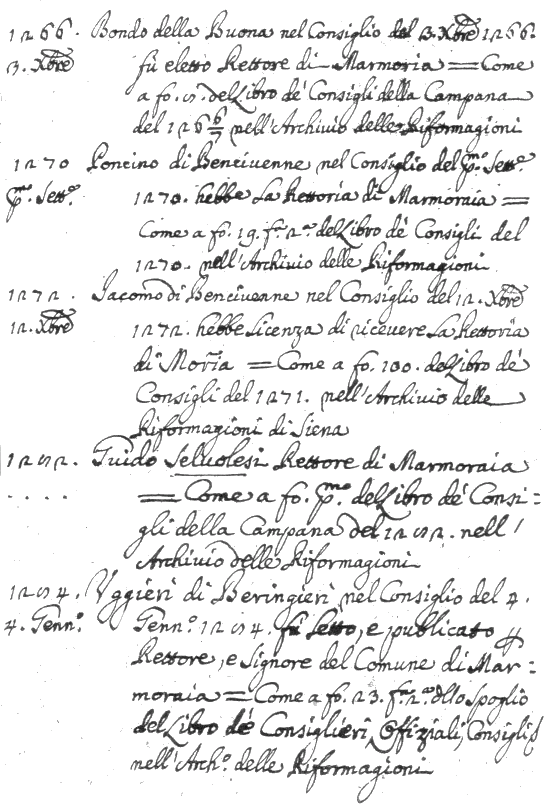 1266. Bondo della Buona nel Consiglio del 3. Xbre 1266.
3. Xbre fù eletto Rettore di Marmoria = Come
a fo. 5. del Libro de Consigli della Campana
del 126 6/7 nell'Archivio delle Riformagioni
1270 Poncino di Bencivenne nel Consiglio del p.mo Sett.e
p.mo Sett.e 1270. hebbe La Rettoria di Marmoraia =
Come a fo. 19. f.a 2.a del Libro de Consigli del
1270. nell'Archivio delle Riformagioni
1272. Iacomo di Bencivenne nel Consiglio del 12. Xbre
12. Xbre 1272. hebbe Licenza di ricevere La Rettoria
di Moria = Come a fo. 100. del Libro de
Consigli del 1271. nell'Archivio delle
Riformagioni di Siena
1252. Guido Selvolesi Rettore di Marmoraia
. . . . = Come a fo. p.mo del Libro de Consi=
gli della Campana del 1252. nell'
Archivio delle Riformagioni
1254. Uggieri di Beringieri nel Consiglio del 4.
4. Genn.o Genn.o 1254. fù letto, e publicato p
Rettore, e Signore del Comune di Mar=
moraia = Come a fo. 23. f.a 2.a dllo Spoglio
del Libro de Consiglieri, Offiziali, Consigli
nell'Arch.o delle Riformagioni